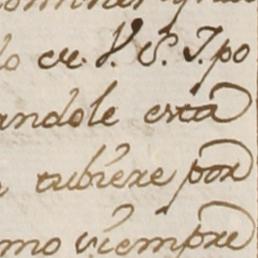 lo cr. V. S. I. po
andole esta
tubiere por
mo siempre